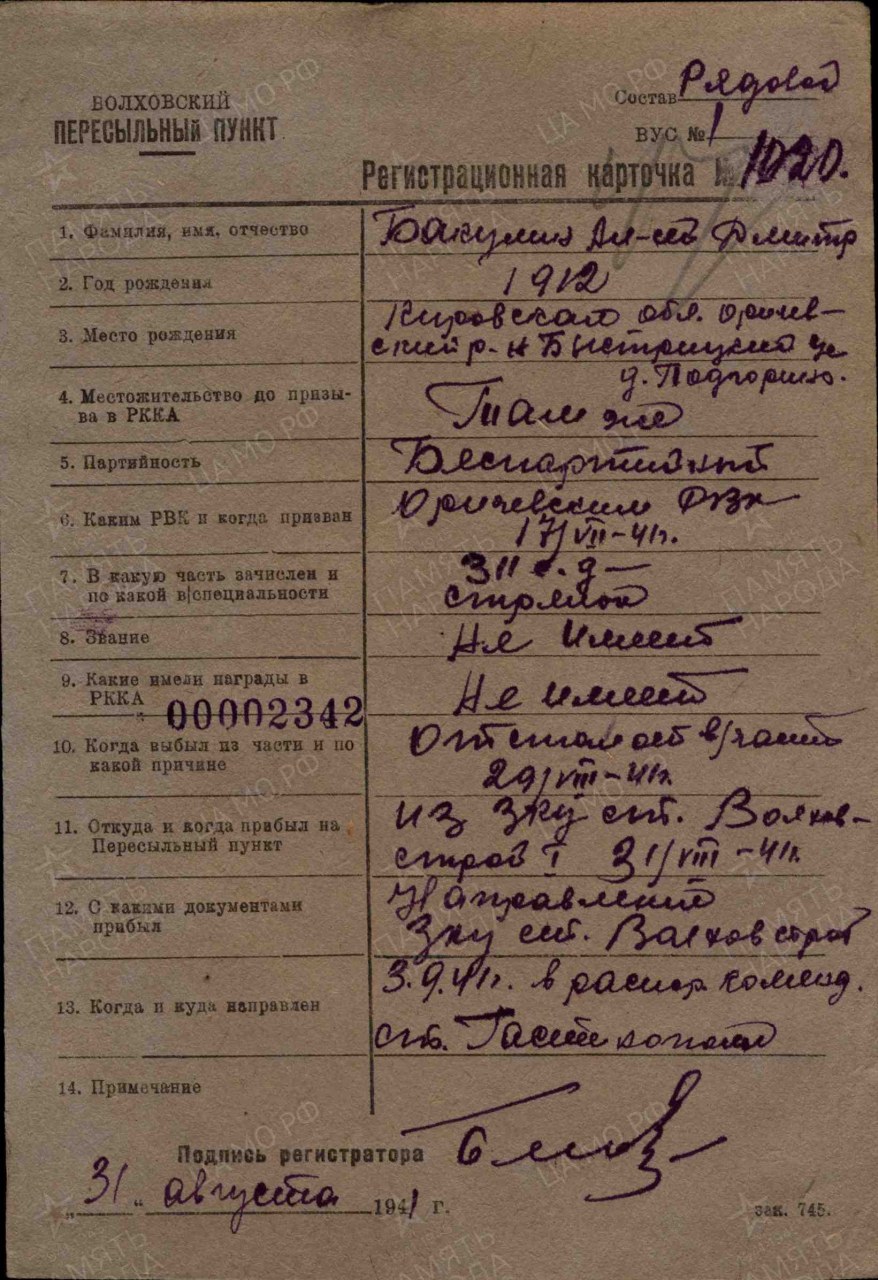 ВОЛХОВСКИЙ
ПЕРЕСЫЛЬНЫЙ ПУНКТ
Состав Рядовой
ВУС № 1
Регистрационная карточка № 1020.
1. Фамилия, имя, отчество Бакулин Ал-ей Дмитр
2. Год рождения 1912
3. Место рождения Кировская обл. Оричев-
ский р-н Быстрицкий
д. Подгорино.
4. Местожительство до призы-
ва в РККА Там же
5. Партийность Беспартийный
6. Каким РВК и когда призван Оричевским РВК
17/VII-41г.
7. В какую часть зачислен и
по какой в/специальности 311 с. д -
стрелок
8. Звание Не имеет
9. Какие имели награды в
РККА Не имеет
00002342
10. Когда выбыл из части и по
какой причине Отстал от в/части
29/VIII-41г.
11. Откуда и когда прибыл на
Пересыльный пункт из ЗКУ ст. Волхов-
строй I 31/VIII-41г.
12. С какими документами
прибыл Направлений
ЗКУ ст. Волховстрой
13. Когда и куда направлен 3.9.41г. в распор. коменд.
ст.
14. Примечание
Подпись регистратора
„31“ августа 1941 г.
зак. 745.
ЦА МО РФ
ПАМЯТЬ
НАРОДА